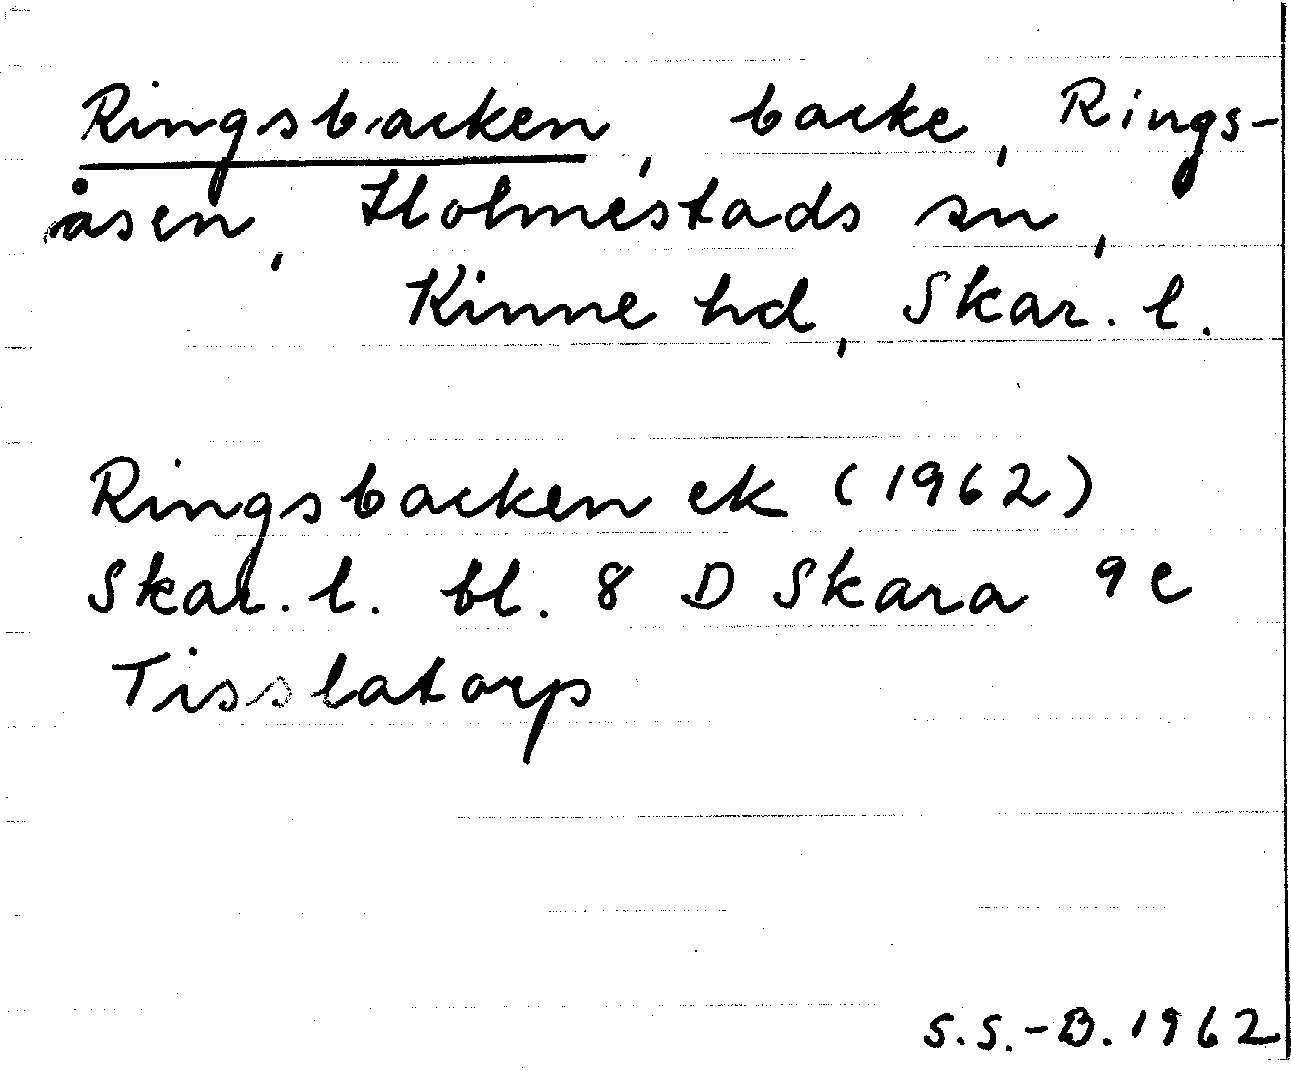 Ringsbacken, backe, Rings-
åsen, Holmestads sn,
Kinne hd, Skar. l.
Ringsbacken ek (1962)
Skar. l. bl. 8 D Skara 9 e
Tisslatorp
S.S.-B. 1962